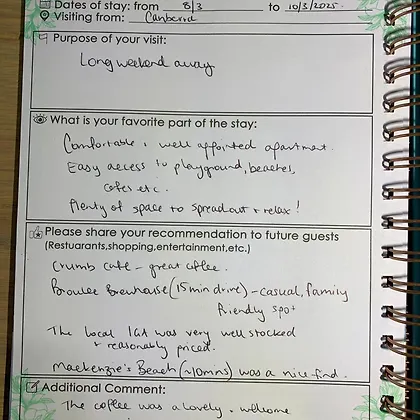 Dates of stay: from 8/3 to 10/3/2025.
Visiting from: Canberra
Purpose of your visit:
Long weekend away
What is your favorite part of the stay:
Comfortable & well appointed apartment.
Easy access to playground, beaches,
cafes etc.
Plenty of space to spread out & relax!
Please share your recommendation to future guests
(Restuarants,shopping,entertainment,etc.)
Crumb cafe - great coffee.
Broulee Brewhouse (15 min drive) - casual, family
friendly spot
The local IGA was very well stocked
& reasonably priced.
Mackenzie's Beach (~10mns) was a nice find.
Additional Comment:
The coffee was a lovely welcome